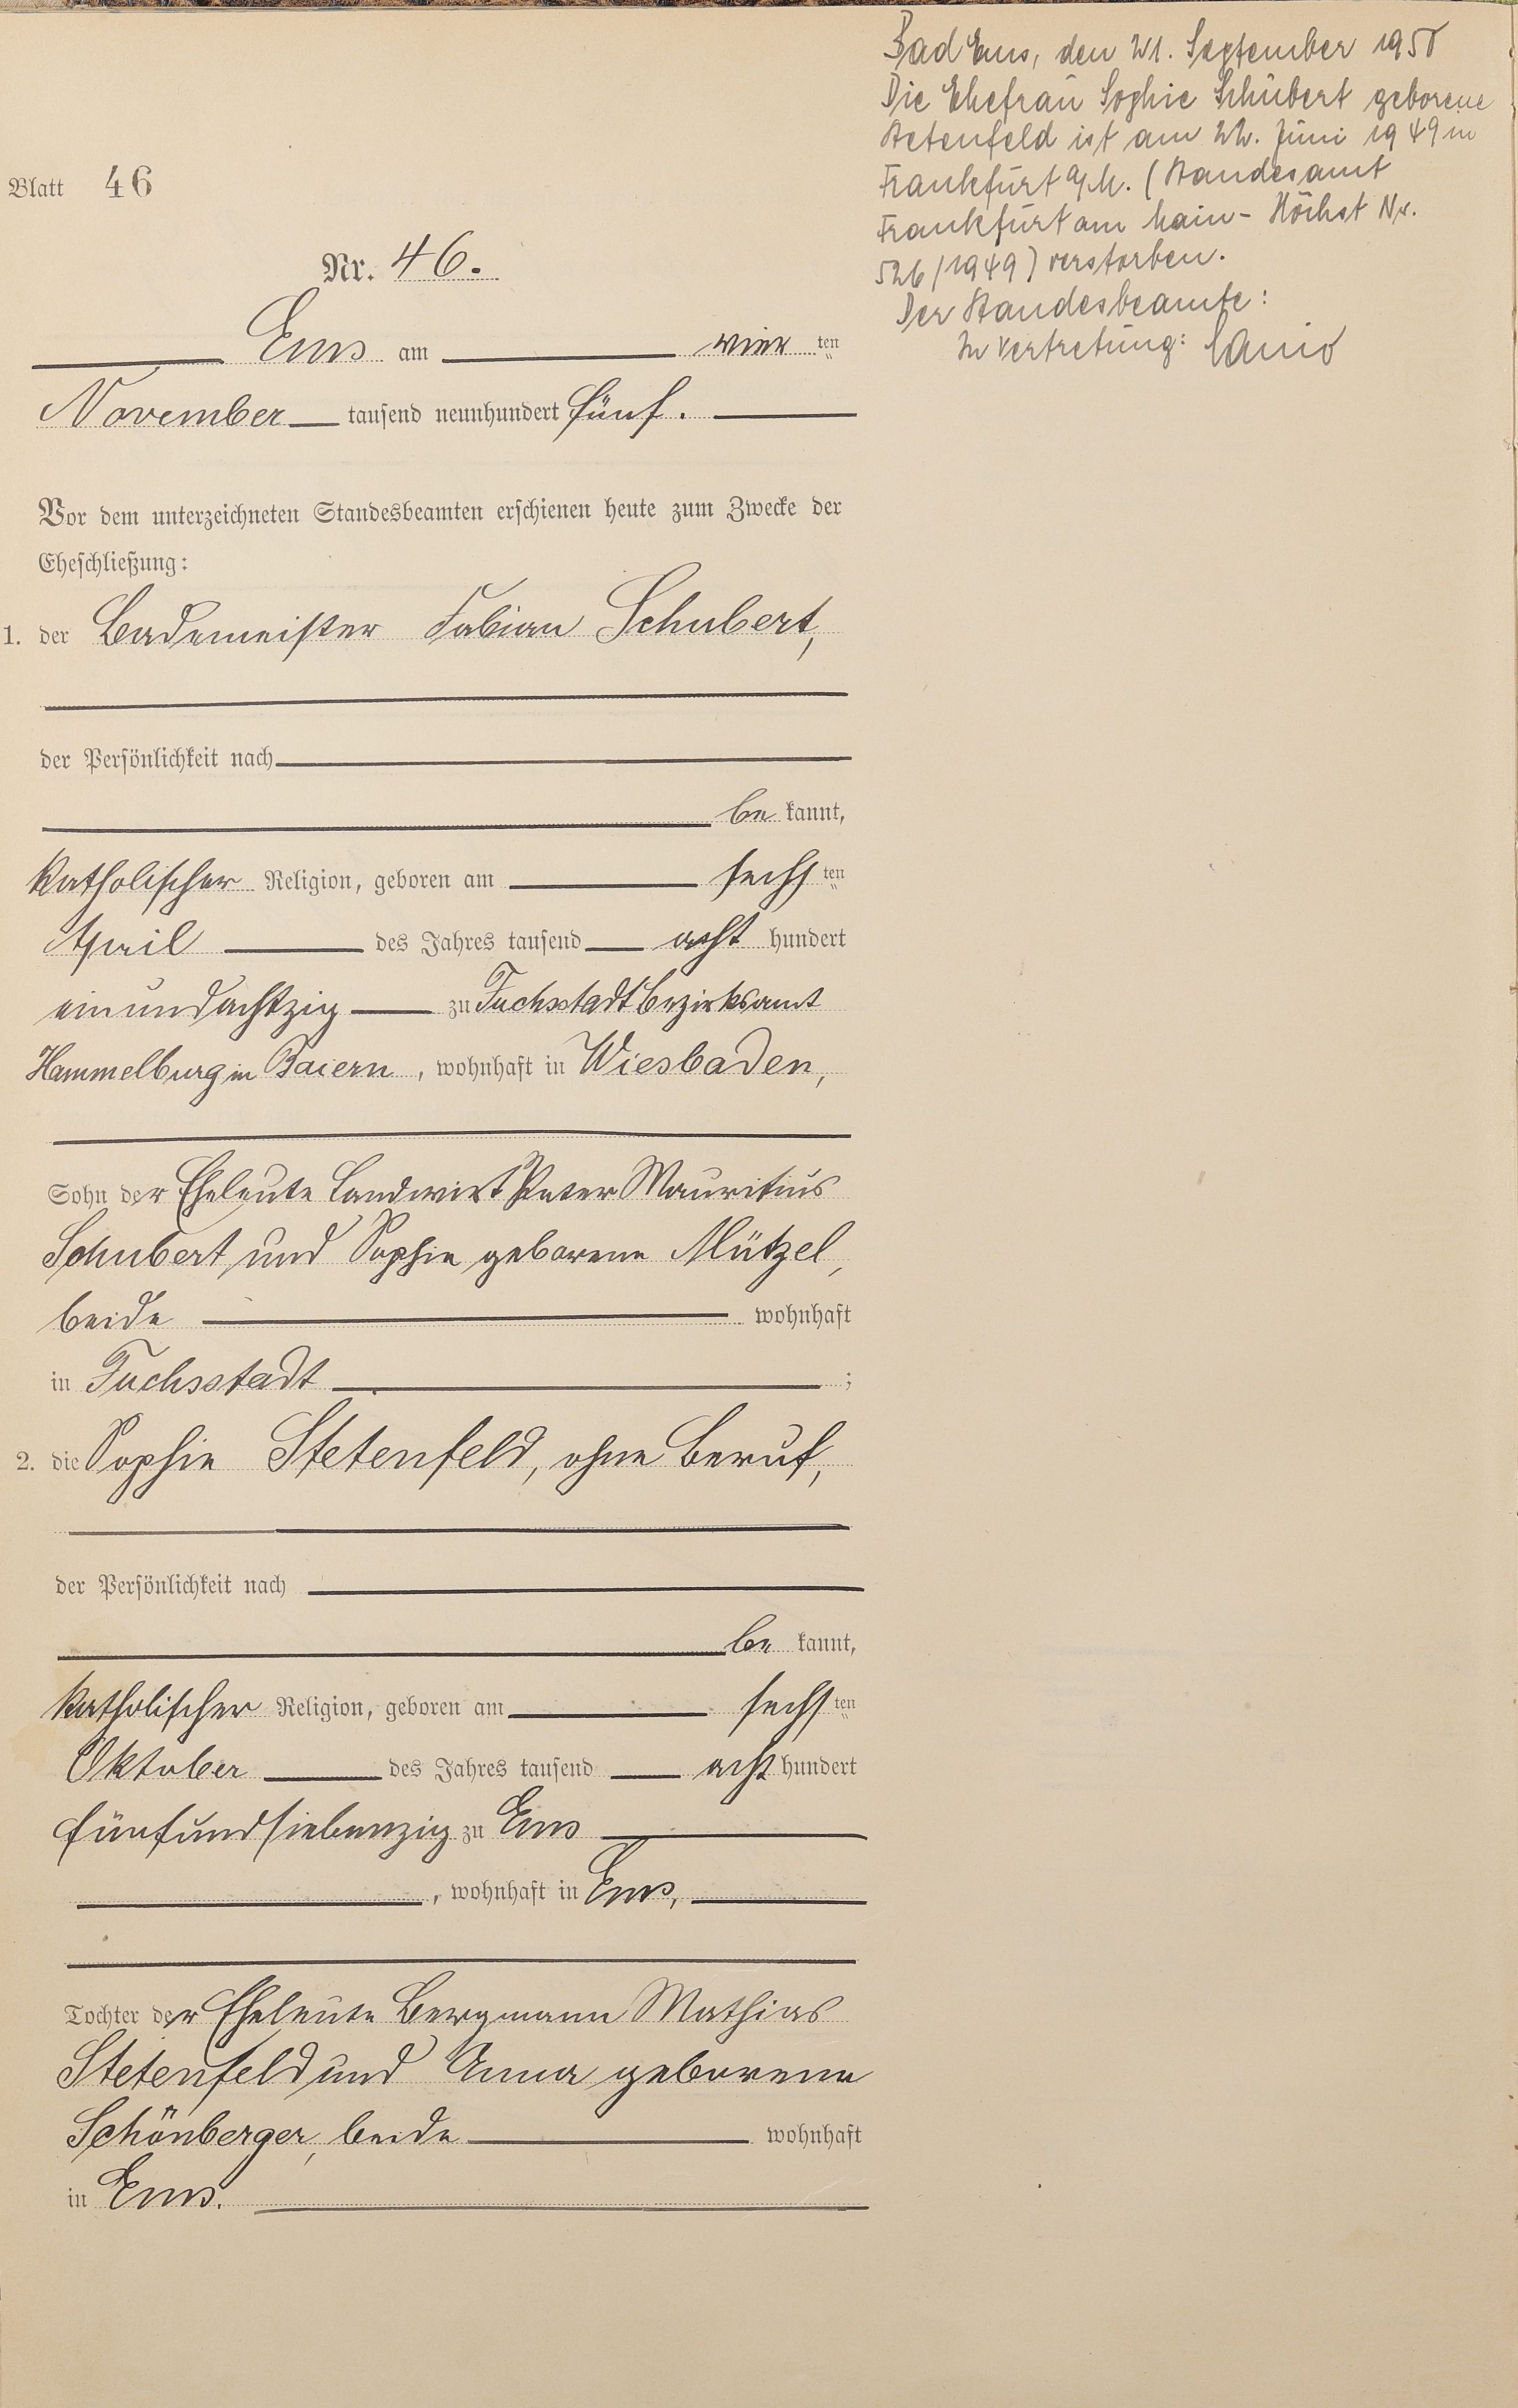 Blatt 46
Nr. 46.
Ems am vier ten
November tausend neunhundert fünf.
Vor dem unterzeichneten Standesbeamten erschienen heute zum Zwecke der
Eheschließung:
1. der Bademeister Fabian Schubert,
der Persönlichkeit nach
be kannt,
katholischer Religion, geboren am sechs ten
April des Jahres tausend acht hundert
einundachtzig zu Fuchsstadt Bezirksamt
Hammelburg in Baiern, wohnhaft in Wiesbaden,
Sohn der Eheleute Landwirt Peter Mauritius
Schubert und Sophie geborene Mützel,
beide wohnhaft
in Fuchsstadt ;
2. die Sophie Stetenfeld, ohne Beruf,
der Persönlichkeit nach
be kannt,
katholischer Religion, geboren am sechs ten
Oktober des Jahres tausend acht hundert
fünfundsiebenzig zu Ems
, wohnhaft in Ems,
Tochter der Eheleute Bergmann Mathias
Stetenfeld und Anna geborene
Schönberger, beide wohnhaft
in Ems.
Bad Ems, den 21. September 1950
Die Ehefrau Sophie Schubert geborene
Stetenfeld ist am 22. Juni 1949 in
Frankfurt a/M. (Standesamt
Frankfurt am Main - Höchst Nr.
526/1949) verstorben.
Der Standesbeamte:
In Vertretung: